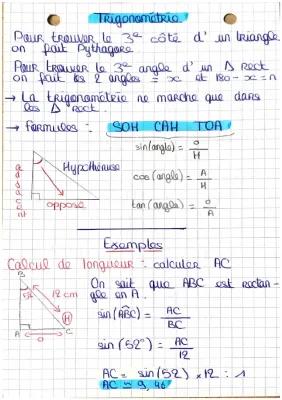 Trigonométrie
Pour trouver le 3e côté d'un triangle
on fait Pythagore
Pour trouver le 3e angle d'un Δ rect
on fait les 2 angles = x et 180 - x = n
→ La trigonométrie ne marche que dans
les Δ rect.
→ formules : SOH CAH TOA
sin(angle) = o/H
cos(angle) = A/H
tan(angle) = o/A
Hypothénuse
adjacent
opposé
Exemples
Calcul de longueur : calculer AC
B
52°
12 cm
H
A
C
O
On sait que ABC est rectan-
gle en A.
sin(ABC) = AC/BC
sin(52°) = AC/12
AC = sin(52) × 12 : 1
AC ≈ 9,46